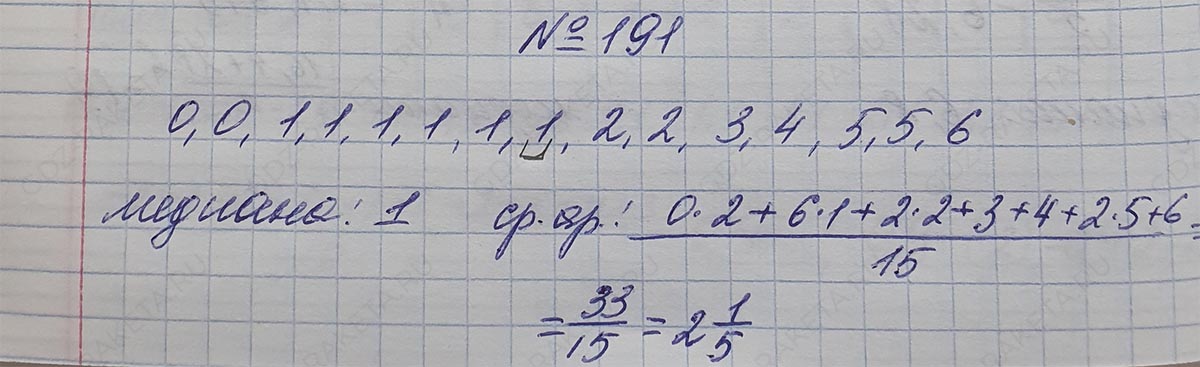 № 191
0, 0, 1, 1, 1, 1, 1, 1, 2, 2, 3, 4, 5, 5, 6
медиана: 1 ср. ар.: (0·2+6·1+2·2+3+4+2·5+6)/15 =
= 33/15 = 2 1/5